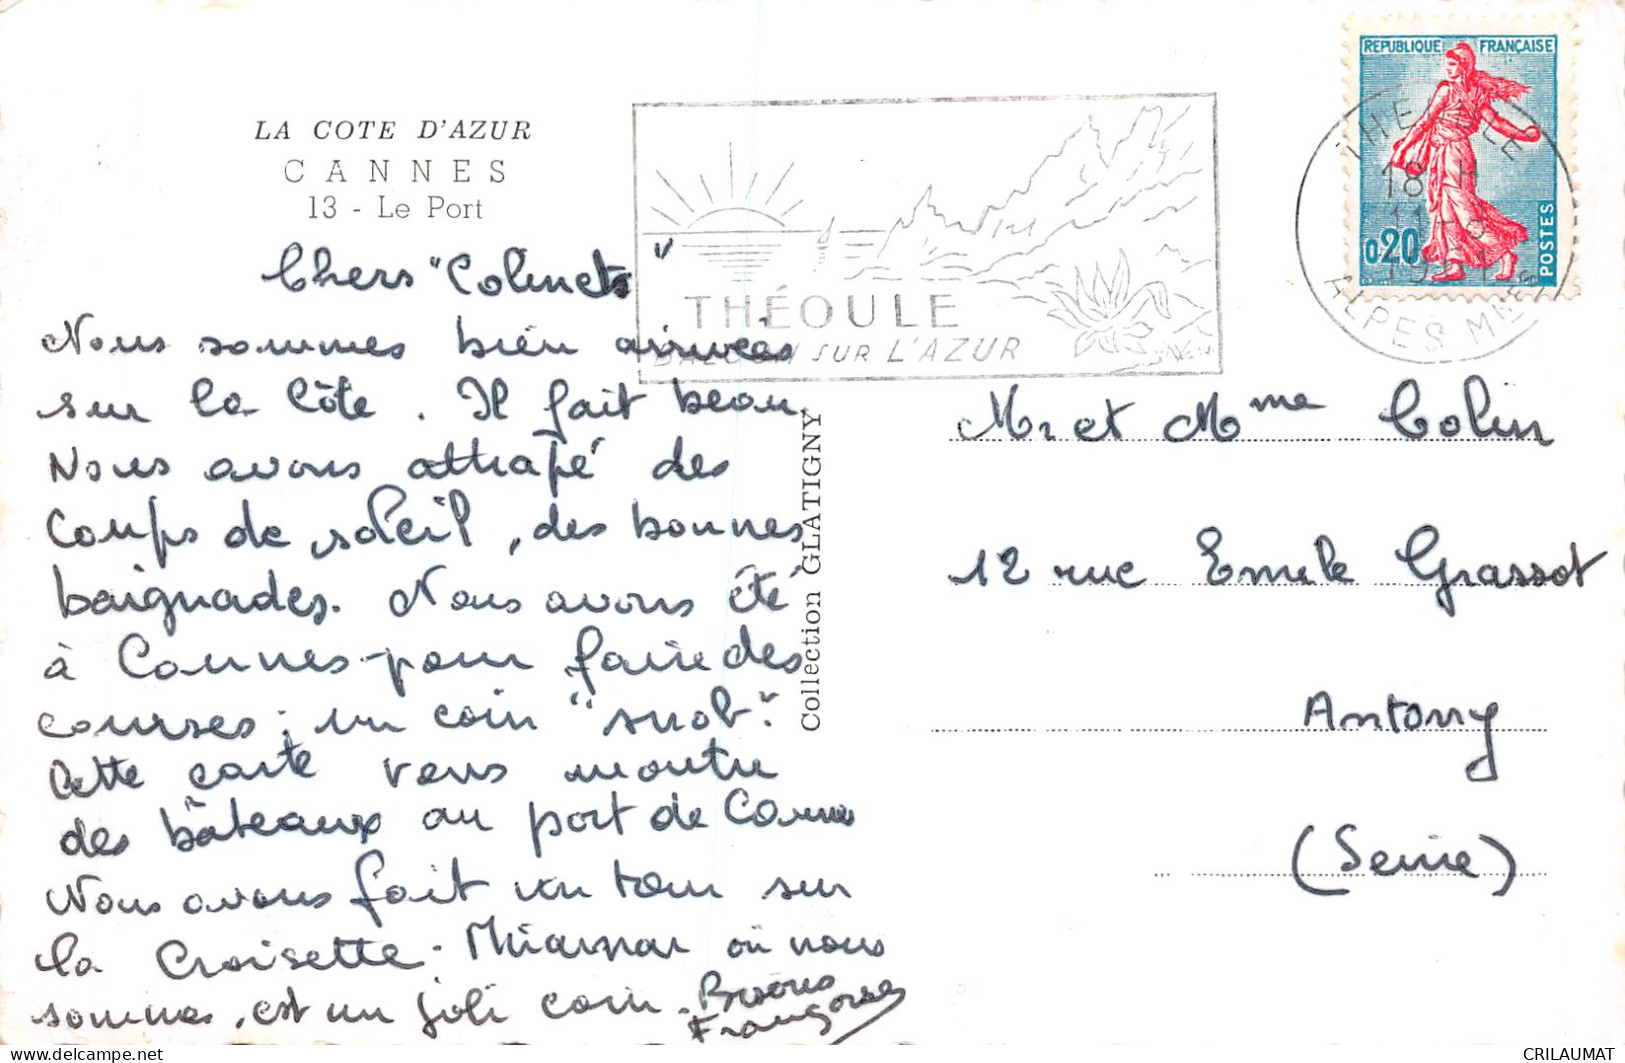 LA COTE D'AZUR
CANNES
13 - Le Port
Chers "Colinets"
Nous sommes bien arrivées
sur la Côte. Il fait beau.
Nous avons attrapé des
coups de soleil, des bonnes
baignades. Nous avons été
à Cannes pour faire des
courses ; un coin "snob".
Cette carte vous montre
des bâteaux au port de Cannes
Nous avons fait un tour sur
la Croisette. Miramar où nous
sommes, est un joli coin. Bisous
Françoise
Collection GLATIGNY
THÉOULE
BALCON SUR L'AZUR
REPUBLIQUE FRANÇAISE
0,20
POSTES
THEOULE
18 H
11 - 8
ALPES MMES
Mr et Mme Colin
12 rue Emile Grassot
Antony
(Seine)
CRILAUMAT